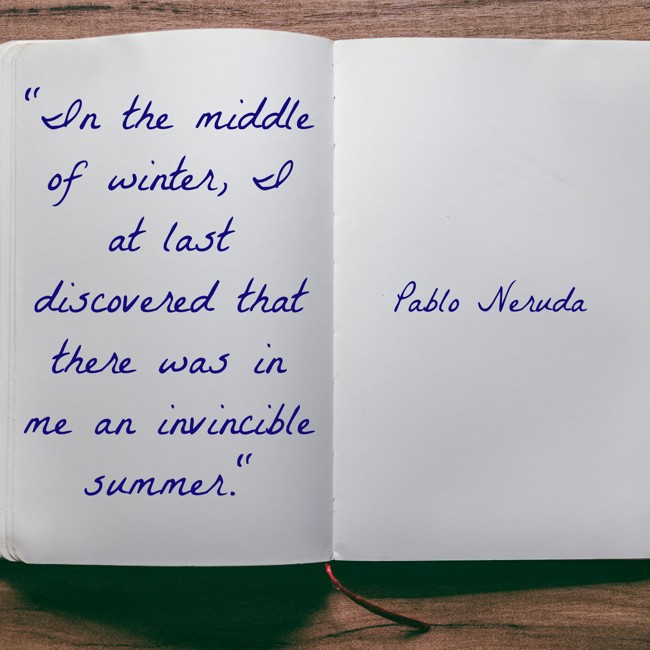 “In the middle
of winter, I
at last
discovered that
there was in
me an invincible
summer.“
Pablo Neruda